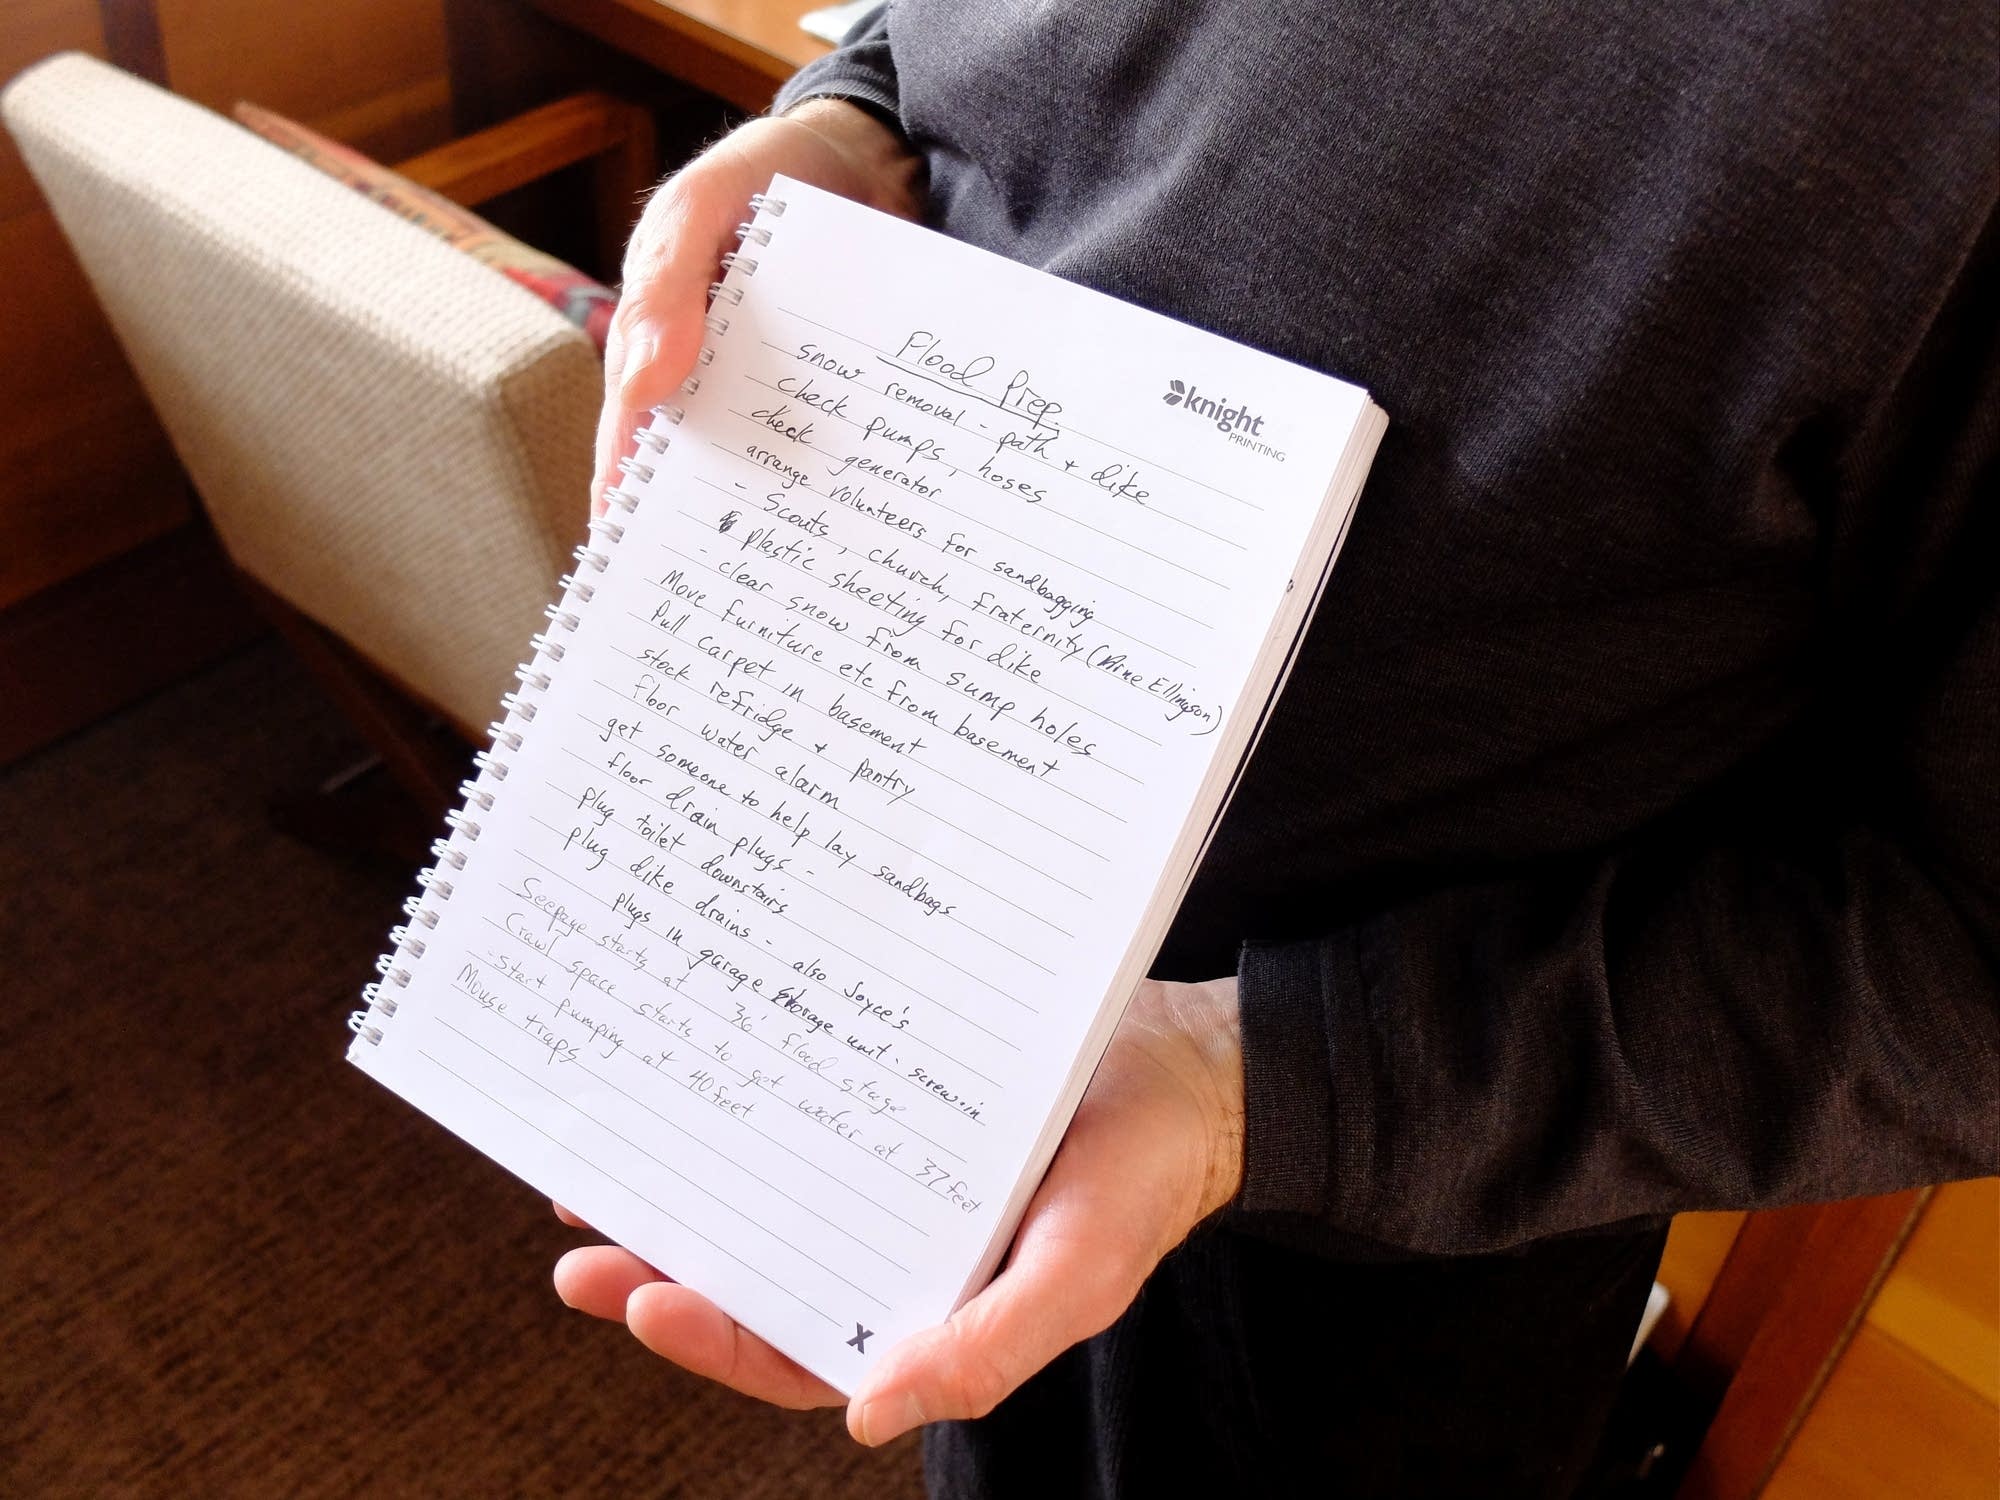 Flood Prep.
knight
PRINTING
snow removal - path + dike
check pumps, hoses
check generator
arrange volunteers for sandbagging
- Scouts, church, fraternity (Arne Ellingson)
plastic sheeting for dike
- clear snow from sump holes
Move furniture etc from basement
Pull carpet in basement
stock refridge + pantry
floor water alarm
get someone to help lay sandbags
floor drain plugs -
plug toilet downstairs
plug dike drains - also Joyce's
plugs in garage storage unit - screw-in
Seepage starts at 36' flood stage
Crawl space starts to get water at 37 feet
- start pumping at 40 feet
Mouse traps
X